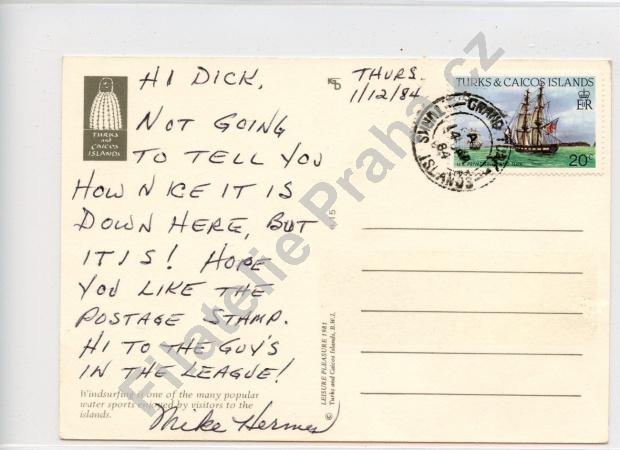 HI DICK,
THURS.
1/12/84
NOT GOING
TO TELL YOU
HOW NICE IT IS
DOWN HERE, BUT
IT IS! HOPE
YOU LIKE THE
POSTAGE STAMP.
HI TO THE GUY'S
IN THE LEAGUE!
Mike Hermes
TURKS
and
CAICOS
ISLANDS
Windsurfing is one of the many popular
water sports enjoyed by visitors to the
islands.
© LEISURE PLEASURE 1981
Turks and Caicos Islands, B.W.I.
15
TURKS & CAICOS ISLANDS
E R
20c
GRAND TURK
ISLANDS
84
Filatelie Praha.cz